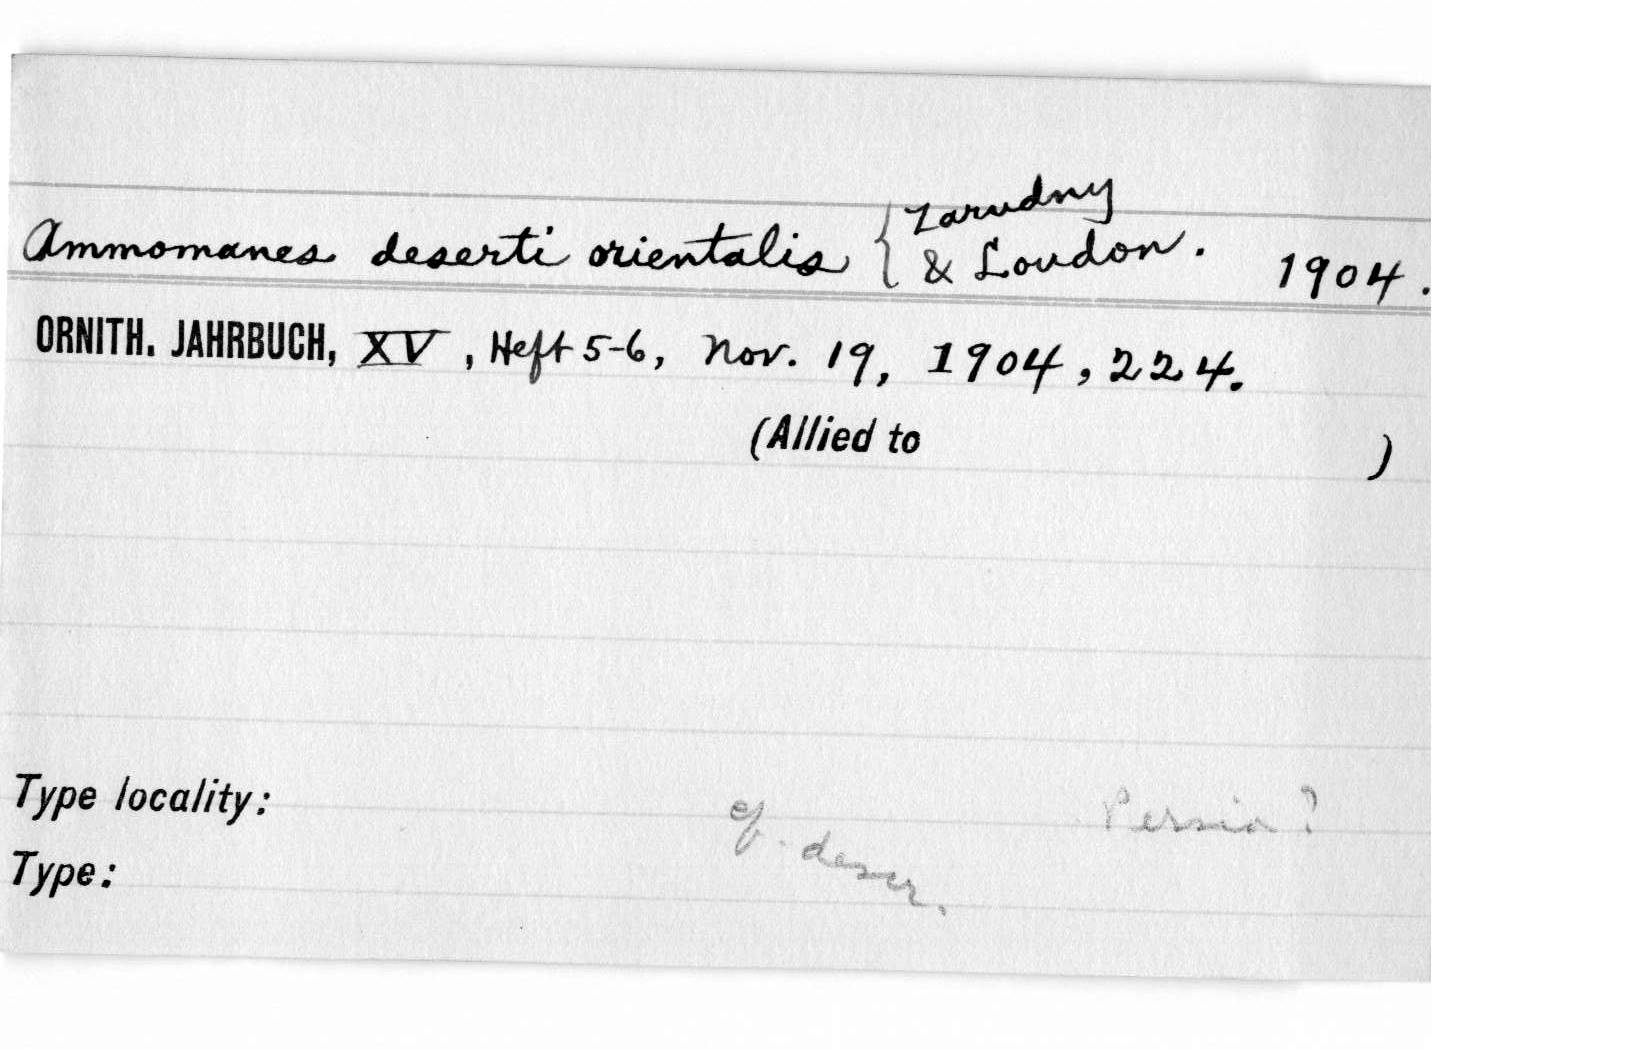 Ammomanes deserti orientalis { Zarudny & Loudon. 1904.
ORNITH. JAHRBUCH, XV, Heft 5-6, Nov. 19, 1904, 224.
(Allied to )
Type locality: Persia?
cf. descr.
Type: